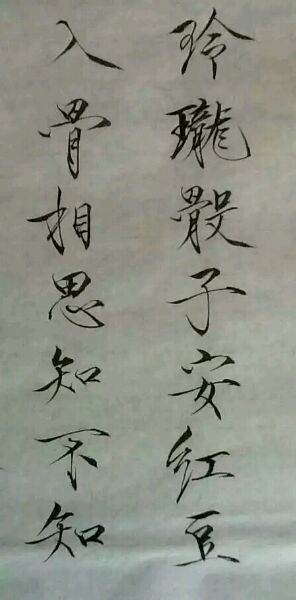 玲瓏骰子安紅豆
入骨相思知不知